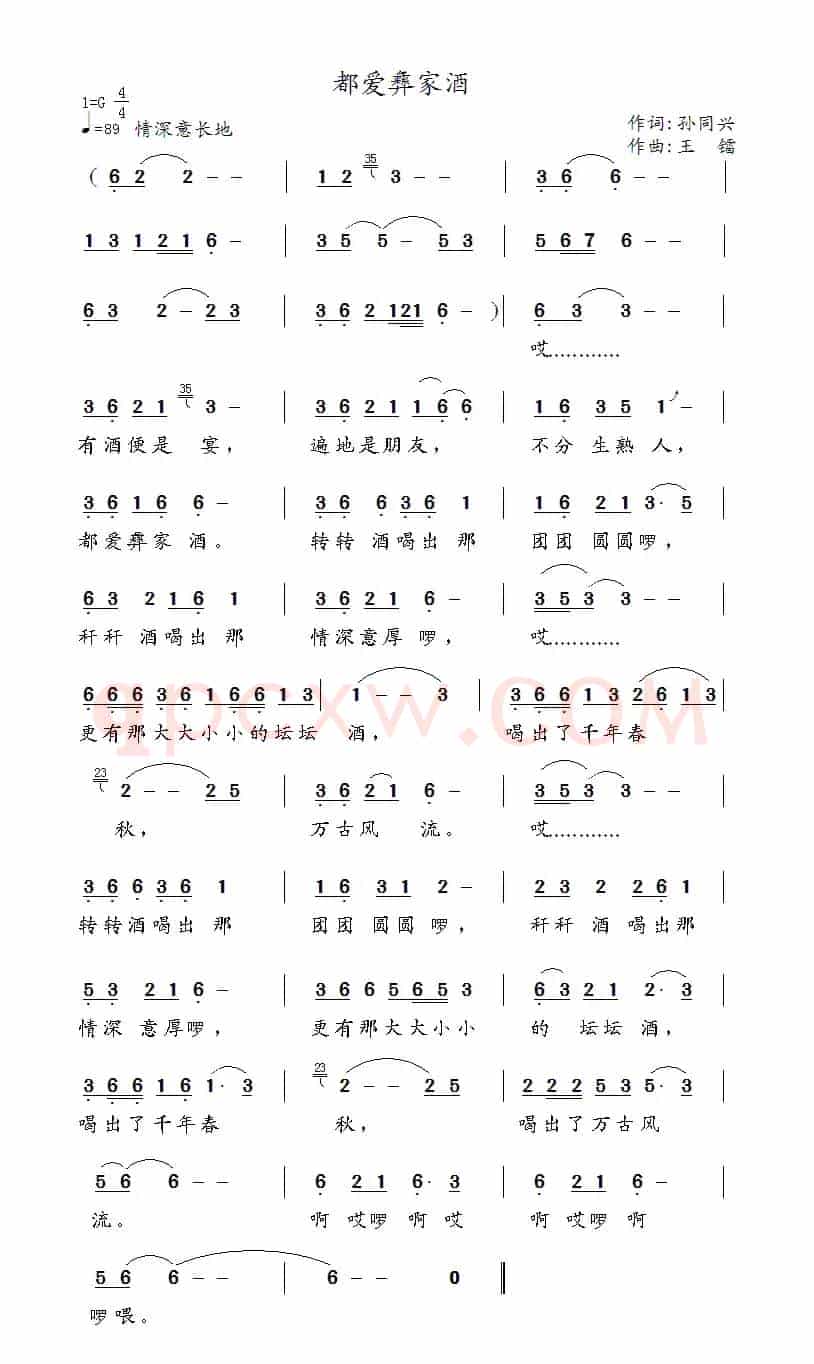 都爱彝家酒
1=G 4/4
♩=89 情深意长地
作词:孙同兴
作曲:王 镭
( 6 2 2 - - | 1 2 35 3 - - | 3 6 6 - - |
1 3 1 2 1 6 - | 3 5 5 - 5 3 | 5 6 7 6 - - |
6 3 2 - 2 3 | 3 6 2 1 2 1 6 - ) | 6 3 3 - - |
哎...........
3 6 2 1 35 3 - | 3 6 2 1 1 6 6 | 1 6 3 5 1 - |
有酒便是 宴, 遍地是朋友, 不分 生熟 人,
3 6 1 6 6 - | 3 6 6 6 3 6 1 | 1 6 2 1 3· 5 |
都爱彝家 酒。 转转 酒喝出 那 团团 圆圆啰,
6 3 2 1 6 1 | 3 6 2 1 6 - | 3 5 3 3 - - |
秆秆 酒喝出 那 情深意厚 啰, 哎...........
6 6 6 3 6 1 6 6 1 3 | 1 - - 3 | 3 6 6 1 3 2 6 1 3 |
更有那大大小小的坛坛 酒, 喝出了千年春
qpcxw.COM
23 2 - - 2 5 | 3 6 2 1 6 - - | 3 5 3 3 - - |
秋, 万古风 流。 哎...........
3 6 6 3 6 1 | 1 6 3 1 2 - | 2 3 2 2 6 1 |
转转酒喝出 那 团团 圆圆 啰, 秆秆 酒 喝出那
5 3 2 1 6 - | 3 6 6 5 6 5 3 | 6 3 2 1 2· 3 |
情深 意厚啰, 更有那大大小小 的 坛坛 酒,
3 6 6 1 6 1· 3 | 23 2 - - 2 5 | 2 2 2 5 3 5· 3 |
喝出了千年春 秋, 喝出了万古风
5 6 6 - - | 6 2 1 6· 3 | 6 2 1 6 - |
流。 啊 哎啰 啊 哎 啊 哎啰 啊
5 6 6 - - | 6 - - 0 ‖
啰喂。